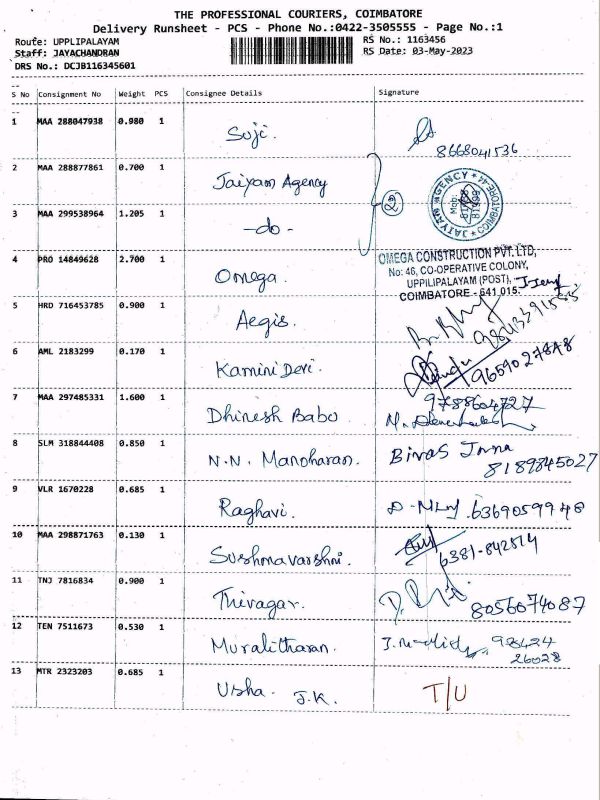 THE PROFESSIONAL COURIERS, COIMBATORE
Delivery Runsheet - PCS - Phone No.:0422-3505555 - Page No.:1
Route: UPPLIPALAYAM RS No.: 1163456
Staff: JAYACHANDRAN RS Date: 03-May-2023
DRS No.: DCJB116345601
S No Consignment No Weight PCS Consignee Details Signature
1 MAA 288047938 0.980 1 Suji.
8668041536
2 MAA 288877861 0.700 1 Jaiyam Agency
JAIYAM AGENCY COIMBATORE
3 MAA 299538964 1.205 1 -do- 2
4 PRO 14849628 2.700 1 Omega.
OMEGA CONSTRUCTION PVT. LTD,
No: 46, CO-OPERATIVE COLONY,
UPPILIPALAYAM (POST),
COIMBATORE - 641 015.
5 HRD 716453785 0.900 1 Aegis.
6 AML 2183299 0.170 1 Kamini Devi. 9659027848
7 MAA 297485331 1.600 1 Dhinesh Babu 9788604727
8 SLM 318844408 0.850 1 N.N. Manoharan.
8189845027
9 VLR 1670228 0.685 1 Raghavi. 6369059948
10 MAA 298871763 0.130 1 Sushmavarshni. 6381-842514
11 TNJ 7816834 0.900 1 Thivagar. 8056074087
12 TEN 7511673 0.530 1 Muralitharan. 98424
26028
13 MTR 2323203 0.685 1 Usha. J.K. T/U